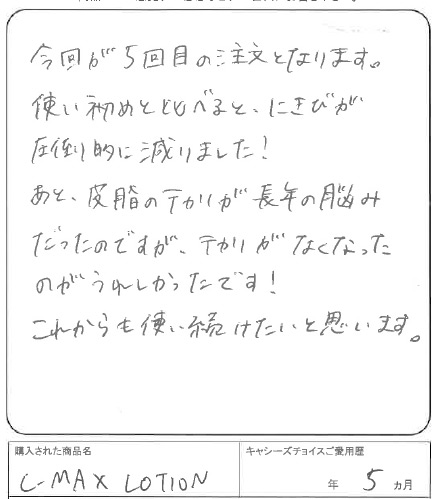 今回が5回目の注文となります。
使い初めと比べると、にきびが
圧倒的に減りました!
あと、皮脂のテカリが長年の悩み
だったのですが、テカリがなくなった
のがうれしかったです!
これからも使い続けたいと思います。
購入された商品名
キャシーズチョイスご愛用歴
C-MAX LOTION
年 5 ヵ月